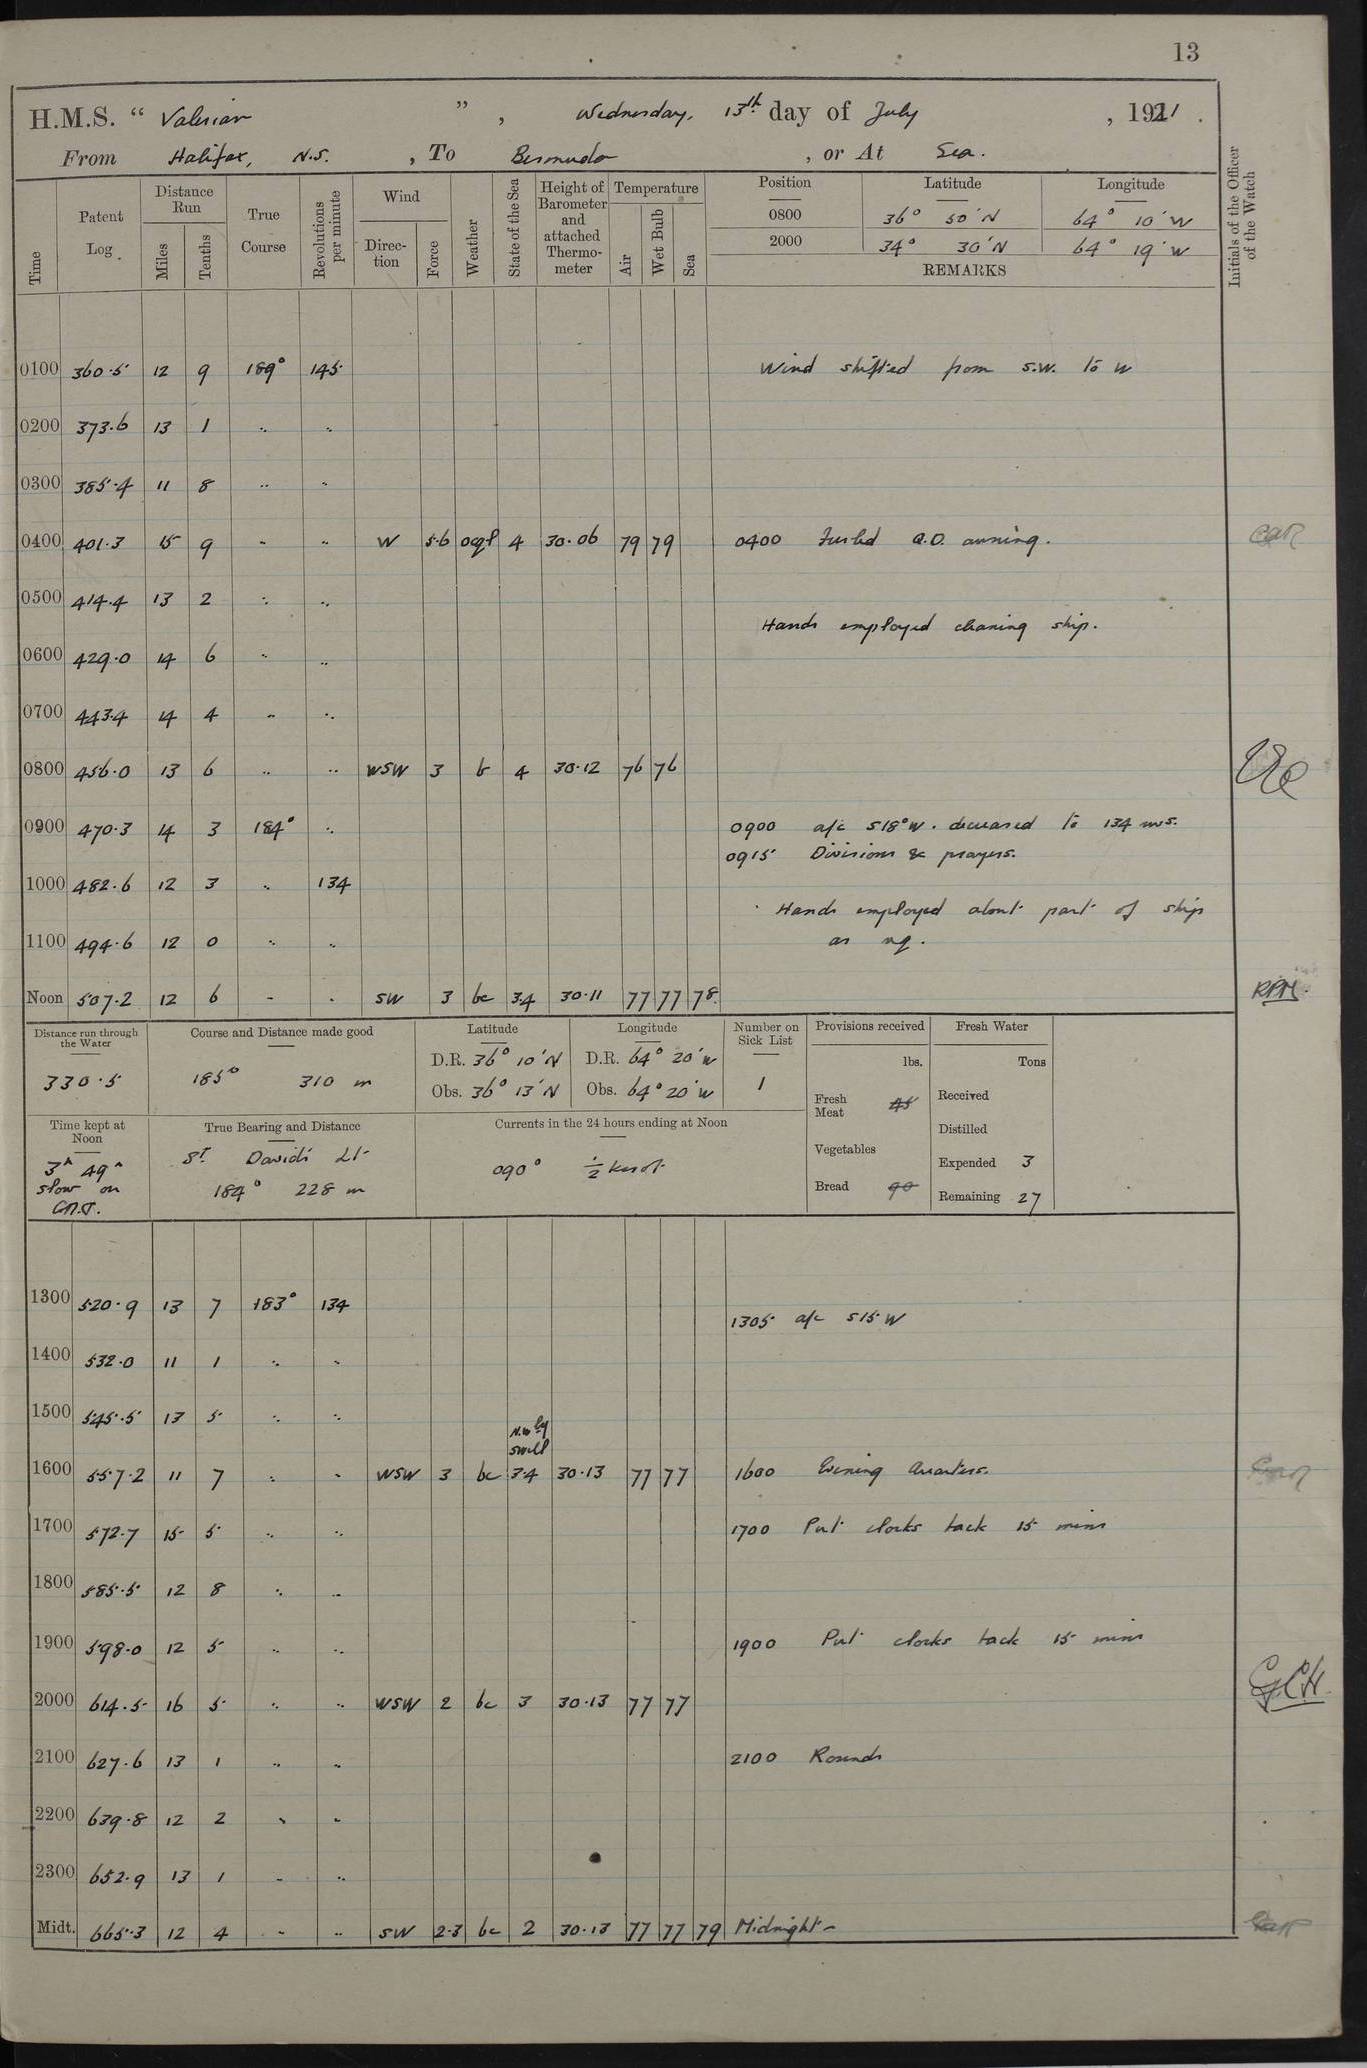 13
H.M.S. “ Valerian ” , Wednesday, 13th day of July , 1921 .
From Halifax, N.S. , To Bermuda , or At Sea.
Time Patent Log Distance Run Miles Tenths True Course Revolutions per minute Wind Direction Force Weather State of the Sea Height of Barometer and attached Thermometer Temperature Air Wet Bulb Sea Position Latitude Longitude Initials of the Officer of the Watch
0800 36° 50' N 64° 10' W
2000 34° 30' N 64° 19' W
REMARKS
0100 360.5 12 9 189° 145 Wind shifted from S.W. to W
0200 373.6 13 1 .. ..
0300 385.4 11 8 .. ..
0400 401.3 15 9 .. .. W 5.6 4 30.06 79 79 0400 Furled Q.D. awning.
0500 414.4 13 2 .. ..
Hands employed cleaning ship.
0600 429.0 14 6 .. ..
0700 443.4 14 4 .. ..
0800 456.0 13 6 .. .. WSW 3 b 4 30.12 76 76
0900 470.3 14 3 184° .. 0900 a/c S18°W. decreased to 134 revs.
0915 Divisions & prayers.
1000 482.6 12 3 .. 134
Hands employed about part of ship
1100 494.6 12 0 .. .. as rq.
Noon 507.2 12 6 .. .. SW 3 bc 3.4 30.11 77 77 78 RPM
Distance run through the Water Course and Distance made good Latitude Longitude Number on Sick List Provisions received Fresh Water
330.5 185° 310 m D.R. 36° 10' N D.R. 64° 20' W 1 lbs. Tons
Obs. 36° 13' N Obs. 64° 20' W Fresh Meat 45 Received
Time kept at Noon True Bearing and Distance Currents in the 24 hours ending at Noon Distilled
3h 49m slow on G.M.T. St. David's Lt. 184° 228 m 090° ½ knot Vegetables Expended 3
Bread 90 Remaining 27
1300 520.9 13 7 183° 134
1305 a/c S15 W
1400 532.0 11 1 .. ..
1500 545.5 13 5 .. ..
N.W ly swell
1600 557.2 11 7 .. .. WSW 3 bc 3.4 30.13 77 77 1600 Evening Quarters.
1700 572.7 15 5 .. .. 1700 Put clocks back 15 mins
1800 585.5 12 8 .. ..
1900 598.0 12 5 .. .. 1900 Put clocks back 15 mins
2000 614.5 16 5 .. .. WSW 2 bc 3 30.13 77 77 GCH
2100 627.6 13 1 .. .. 2100 Rounds
2200 639.8 12 2 .. ..
2300 652.9 13 1 .. ..
Midt. 665.3 12 4 .. .. SW 2.3 bc 2 30.13 77 77 79 Midnight –